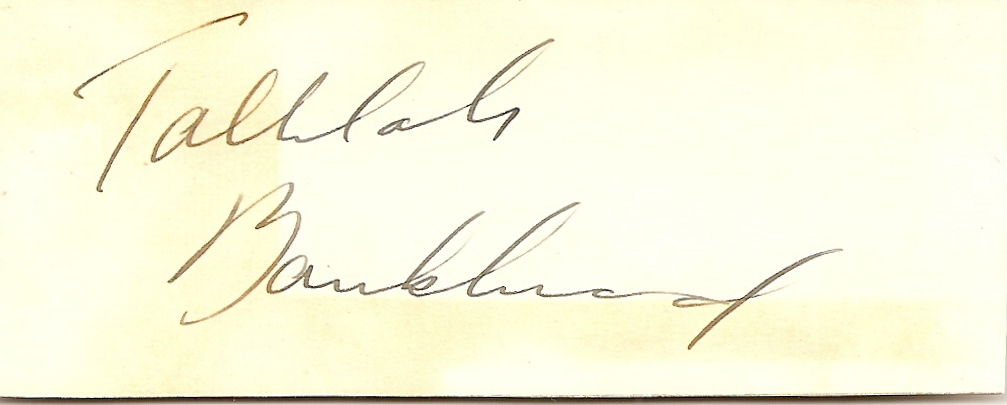 Tallulah
Bankhead